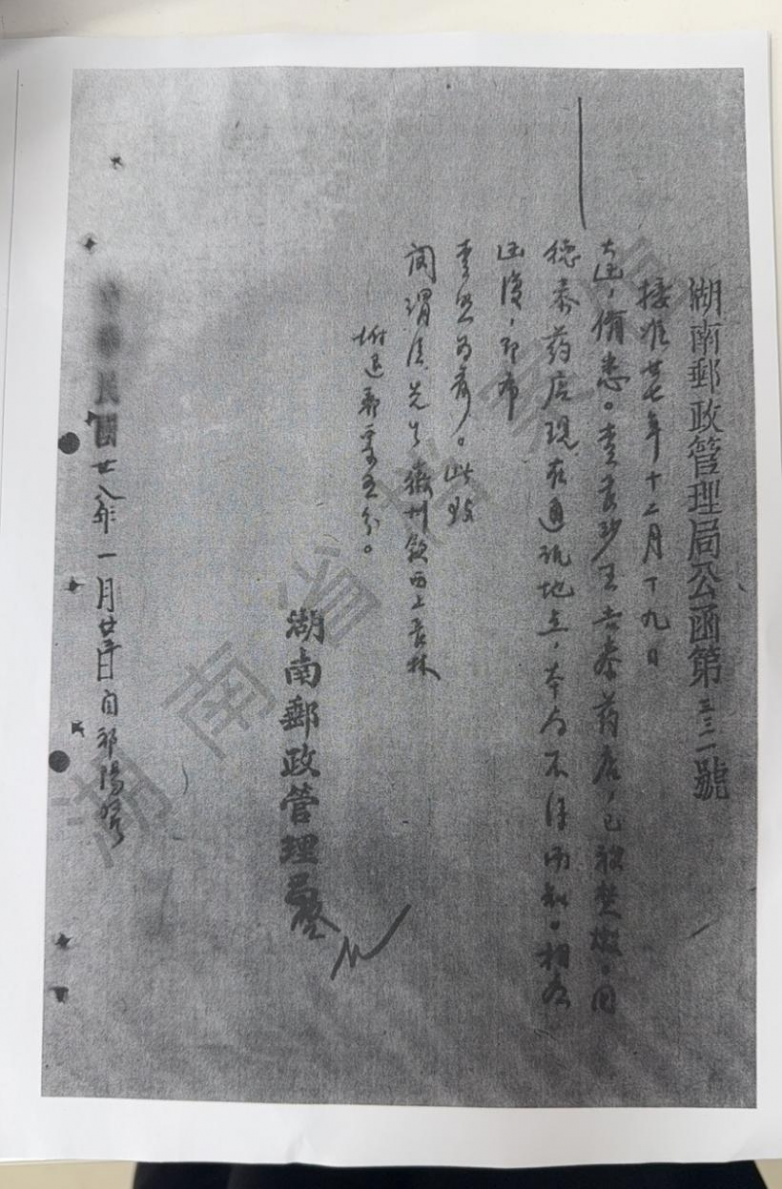 湖南郵政管理局公函第三三一號
接准廿七年十二月十九日
大函，備悉。查長沙王吉泰药店，已被焚燬。同
德泰药店現在通訊地点，本局不得而知。相应
函復，即希
查照为荷。此致
閔渭 先生 徽州歙西上 林
附还郵票五分。
湖南郵政管理局
中華民國廿八年一月廿 日自祁陽發
湖南省档案馆